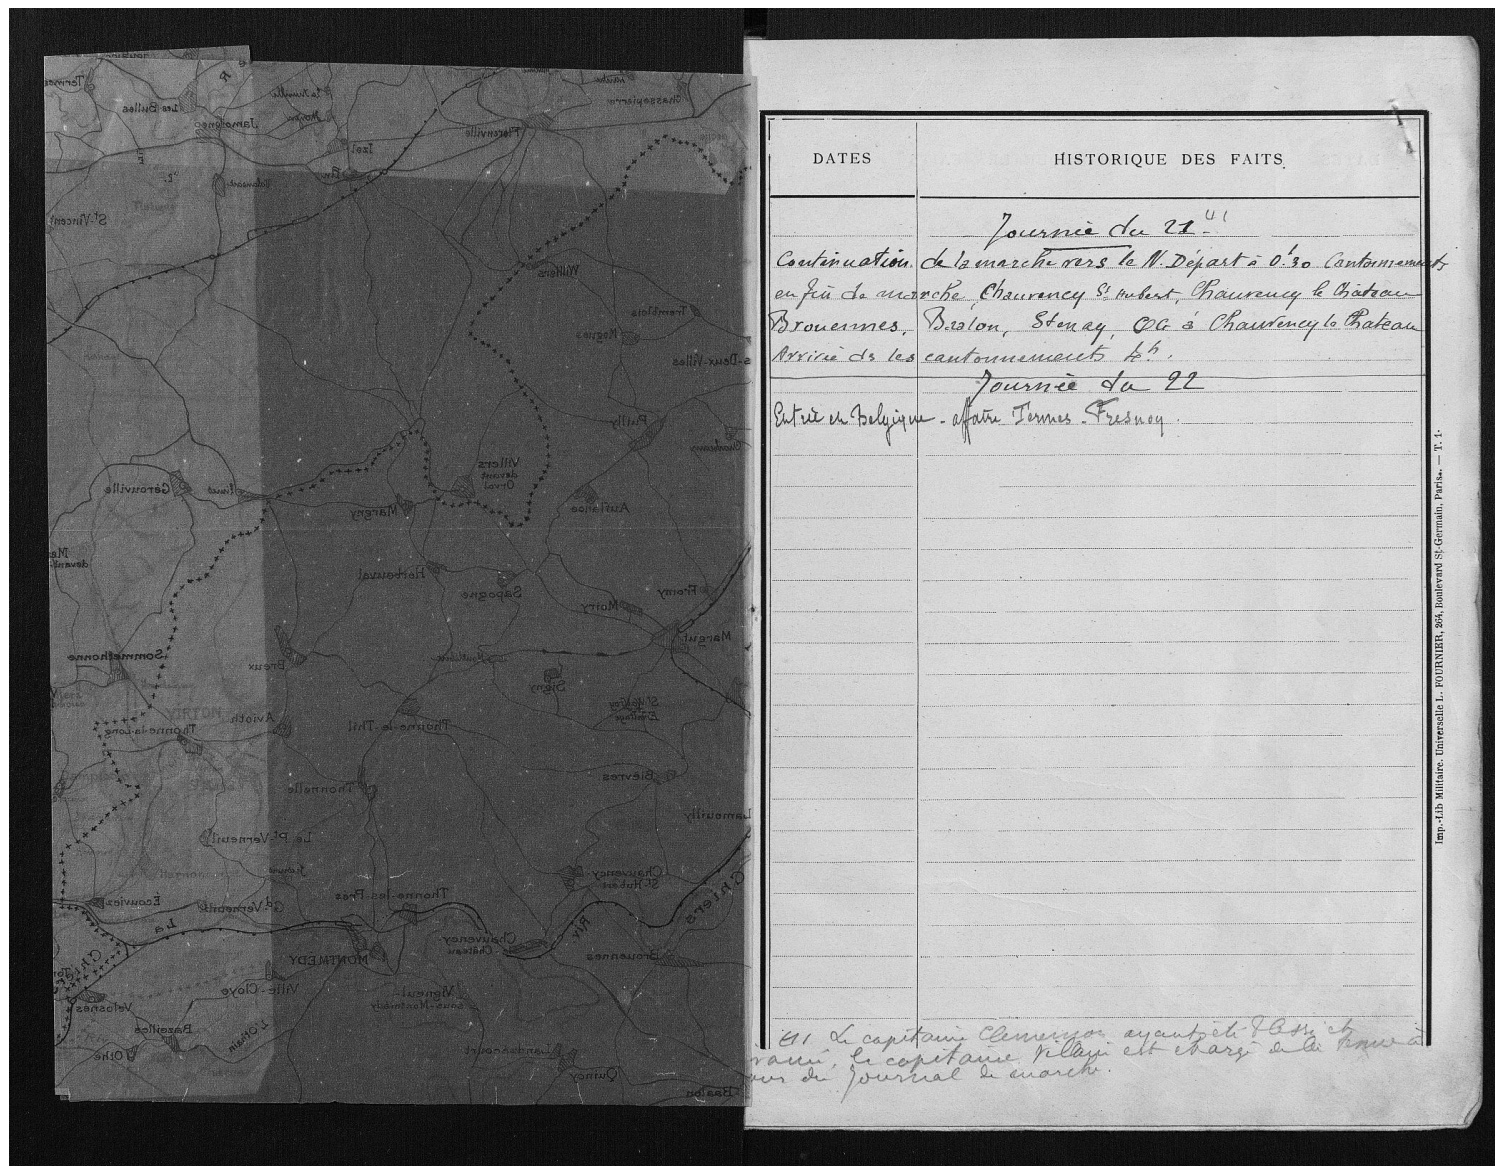 Termes
Les Bulles
Jamoigne
Izel
Pin
Florenville
Chassepierre
St Vincent
Williers
Tremblois
Mogues
s-Deux-Villes
Puilly
Charbeaux
Gérouville
Limes
Villers
devant
Orval
Margny
Auflance
Herbeuval
Sapogne
Moiry
Fromy
Margut
Sommethonne
Breux
Signy
St Walfroy
Ermitage
VIRTON
Avioth
Thonne-la-Long
Thonne-le-Thil
Bièvres
Thonnelle
Lamouilly
Le Pt Verneuil
Chauvency
St Hubert
Chiers
Écouviez
Gd Verneuil
Thonne-les-Prés
La
Riv
Chauvency
Château
MONTMEDY
Brouennes
Chiers
Ville-Cloye
Vigneul
sous-Montmédy
Velosnes
Bazeilles
L'Othain
Othe
Juvigny
Quincy
Baalon
DATES
HISTORIQUE DES FAITS
Journée du 21 (1)
Continuation de la marche vers le N. Départ à 0h30 Cantonnements
en fin de marche, Chauvency St Hubert, Chauvency le Château
Brouennes, Baalon, Stenay, QG à Chauvency le Chateau
Arrivée ds les cantonnements 4h.
Journée du 22
Entrée en Belgique - affaire Termes - Fresnoy.
Imp.-Lib Militaire. Universelle L. FOURNIER, 264, Boulevard St-Germain, Paris. — T. 1.
(1) Le capitaine ayant été blessé et
le capitaine Vilain est chargé de la tenue à
jour du Journal de marche.